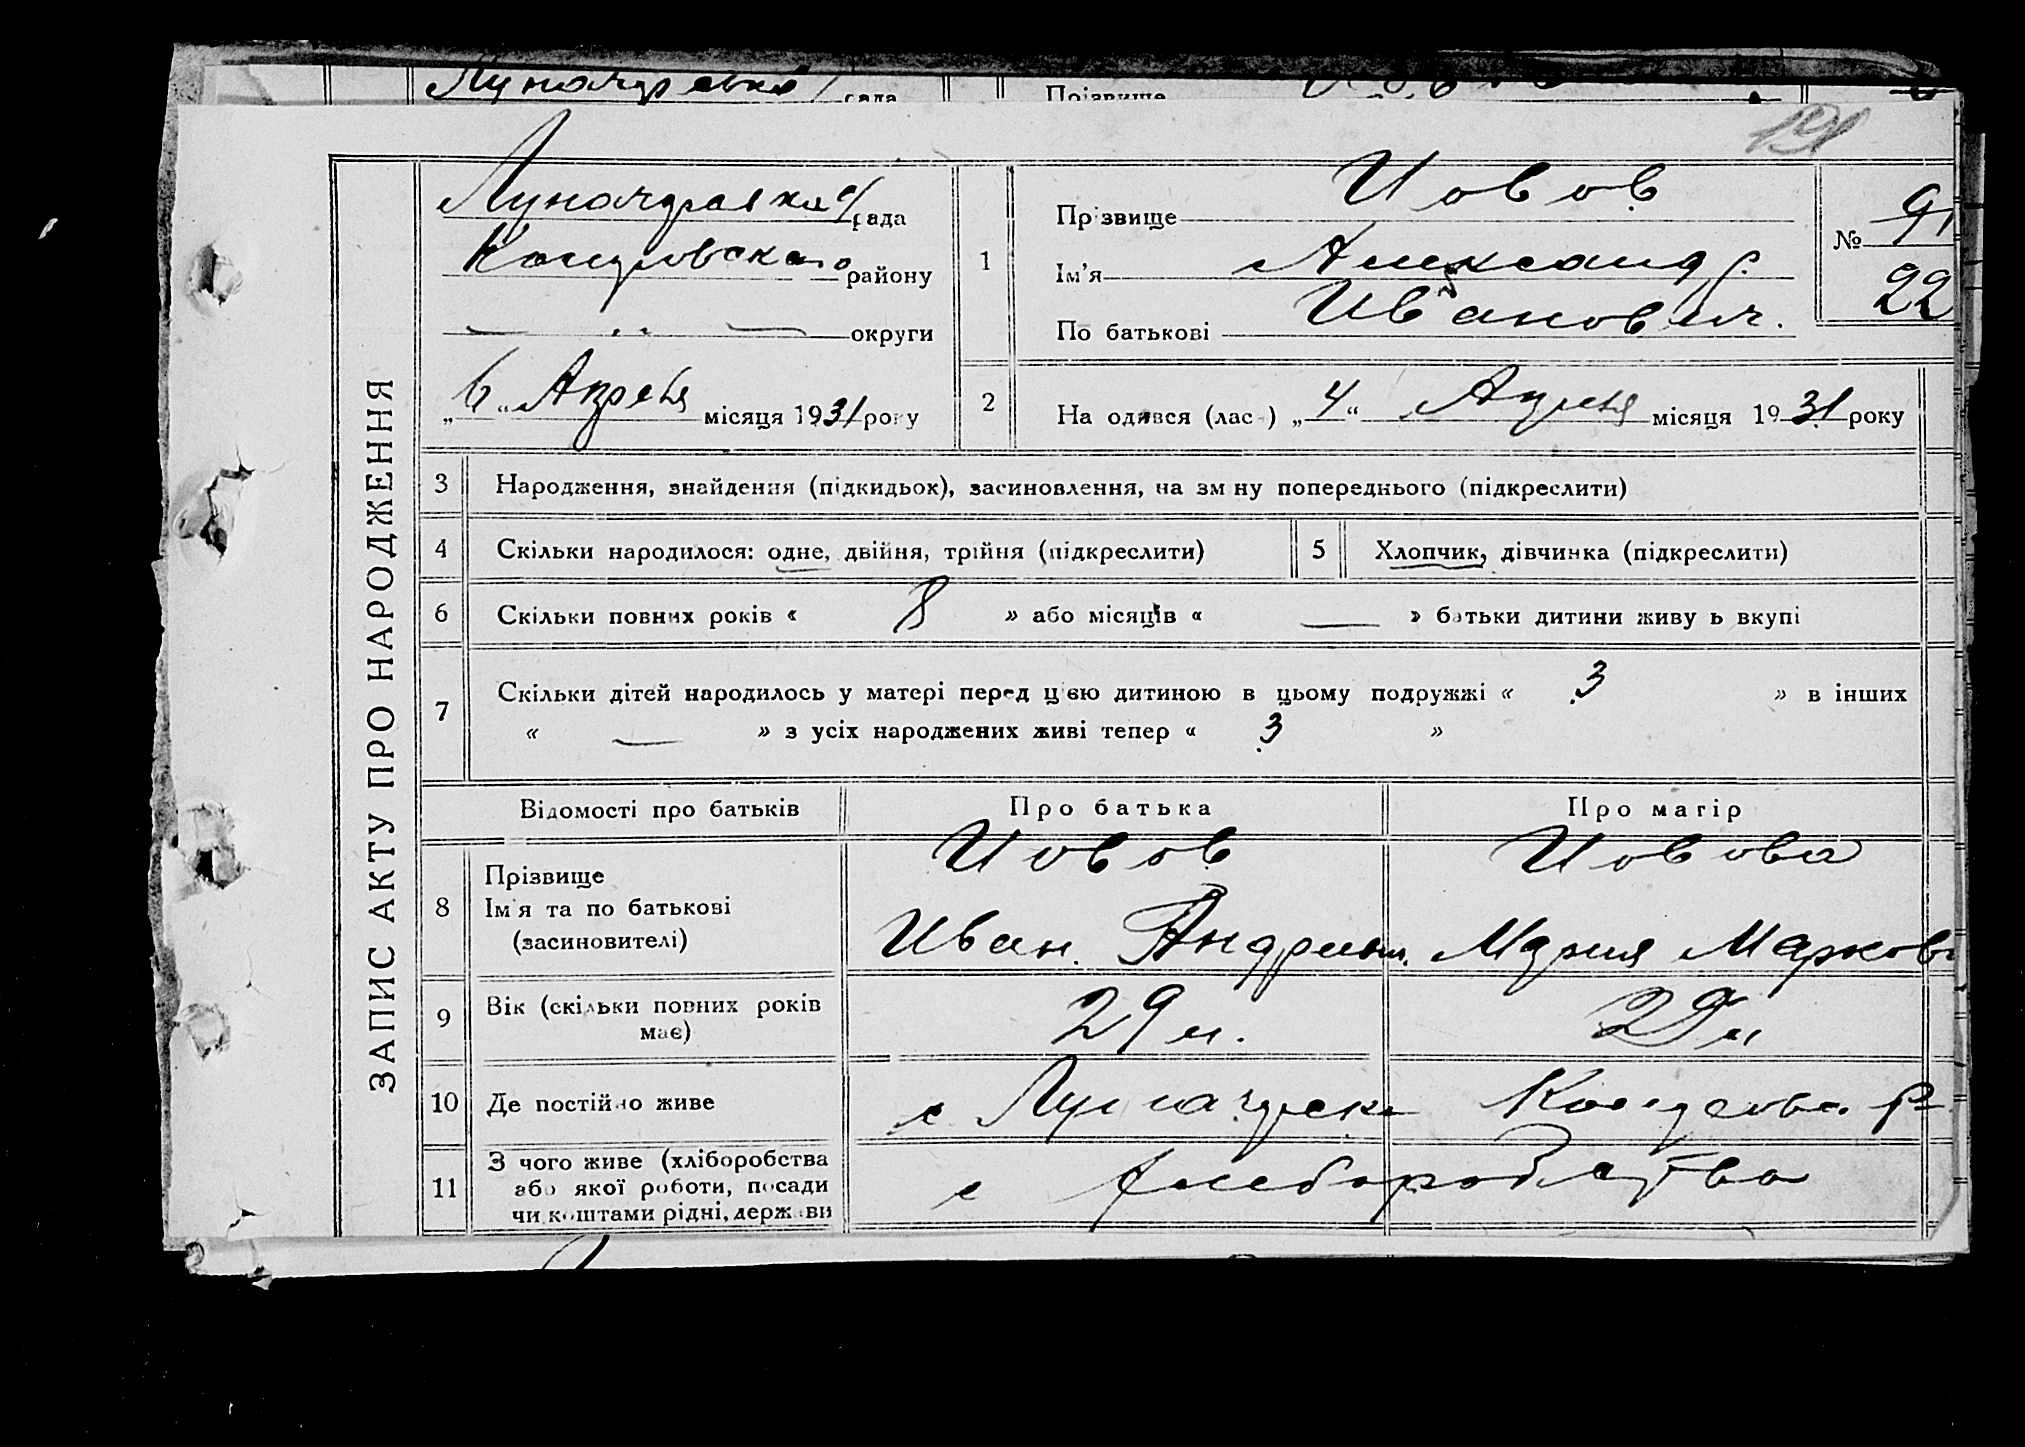 рада
Прізвище
121
ЗАПИС АКТУ ПРО НАРОДЖЕННЯ
рада
району
округи
„6“ Апреля місяця 1931 року
1
Прізвище Иовов
Ім'я Александр.
По батькові Иванович.
№ 91
22
2
На одився (лас ) „4“ Апреля місяця 1931 року
3 Народження, знайдення (підкидьох), засиновлення, на зм ну попереднього (підкреслити)
4 Скільки народилося: одне, двійня, трійня (підкреслити)
5 Хлопчик, дівчинка (підкреслити)
6 Скільки повних років « 8 » або місяців « — » батьки дитини живу ь вкупі
7 Скільки дітей народилось у матері перед цією дитиною в цьому подружжі « 3 » в інших
« — » з усіх народжених живі тепер « 3 »
Відомості про батьків
Про батька
Про матір
8 Прізвище
Ім'я та по батькові
(засиновителі)
Иовов
Иван. Андреич.
Иовова
Мария Марков
9 Вік (скільки повних років
має)
29 л.
29 л
10 Де постійно живе
с
11 З чого живе (хліборобства
або якої роботи, посади
чи коштами рідні, держави
с хлеборобства